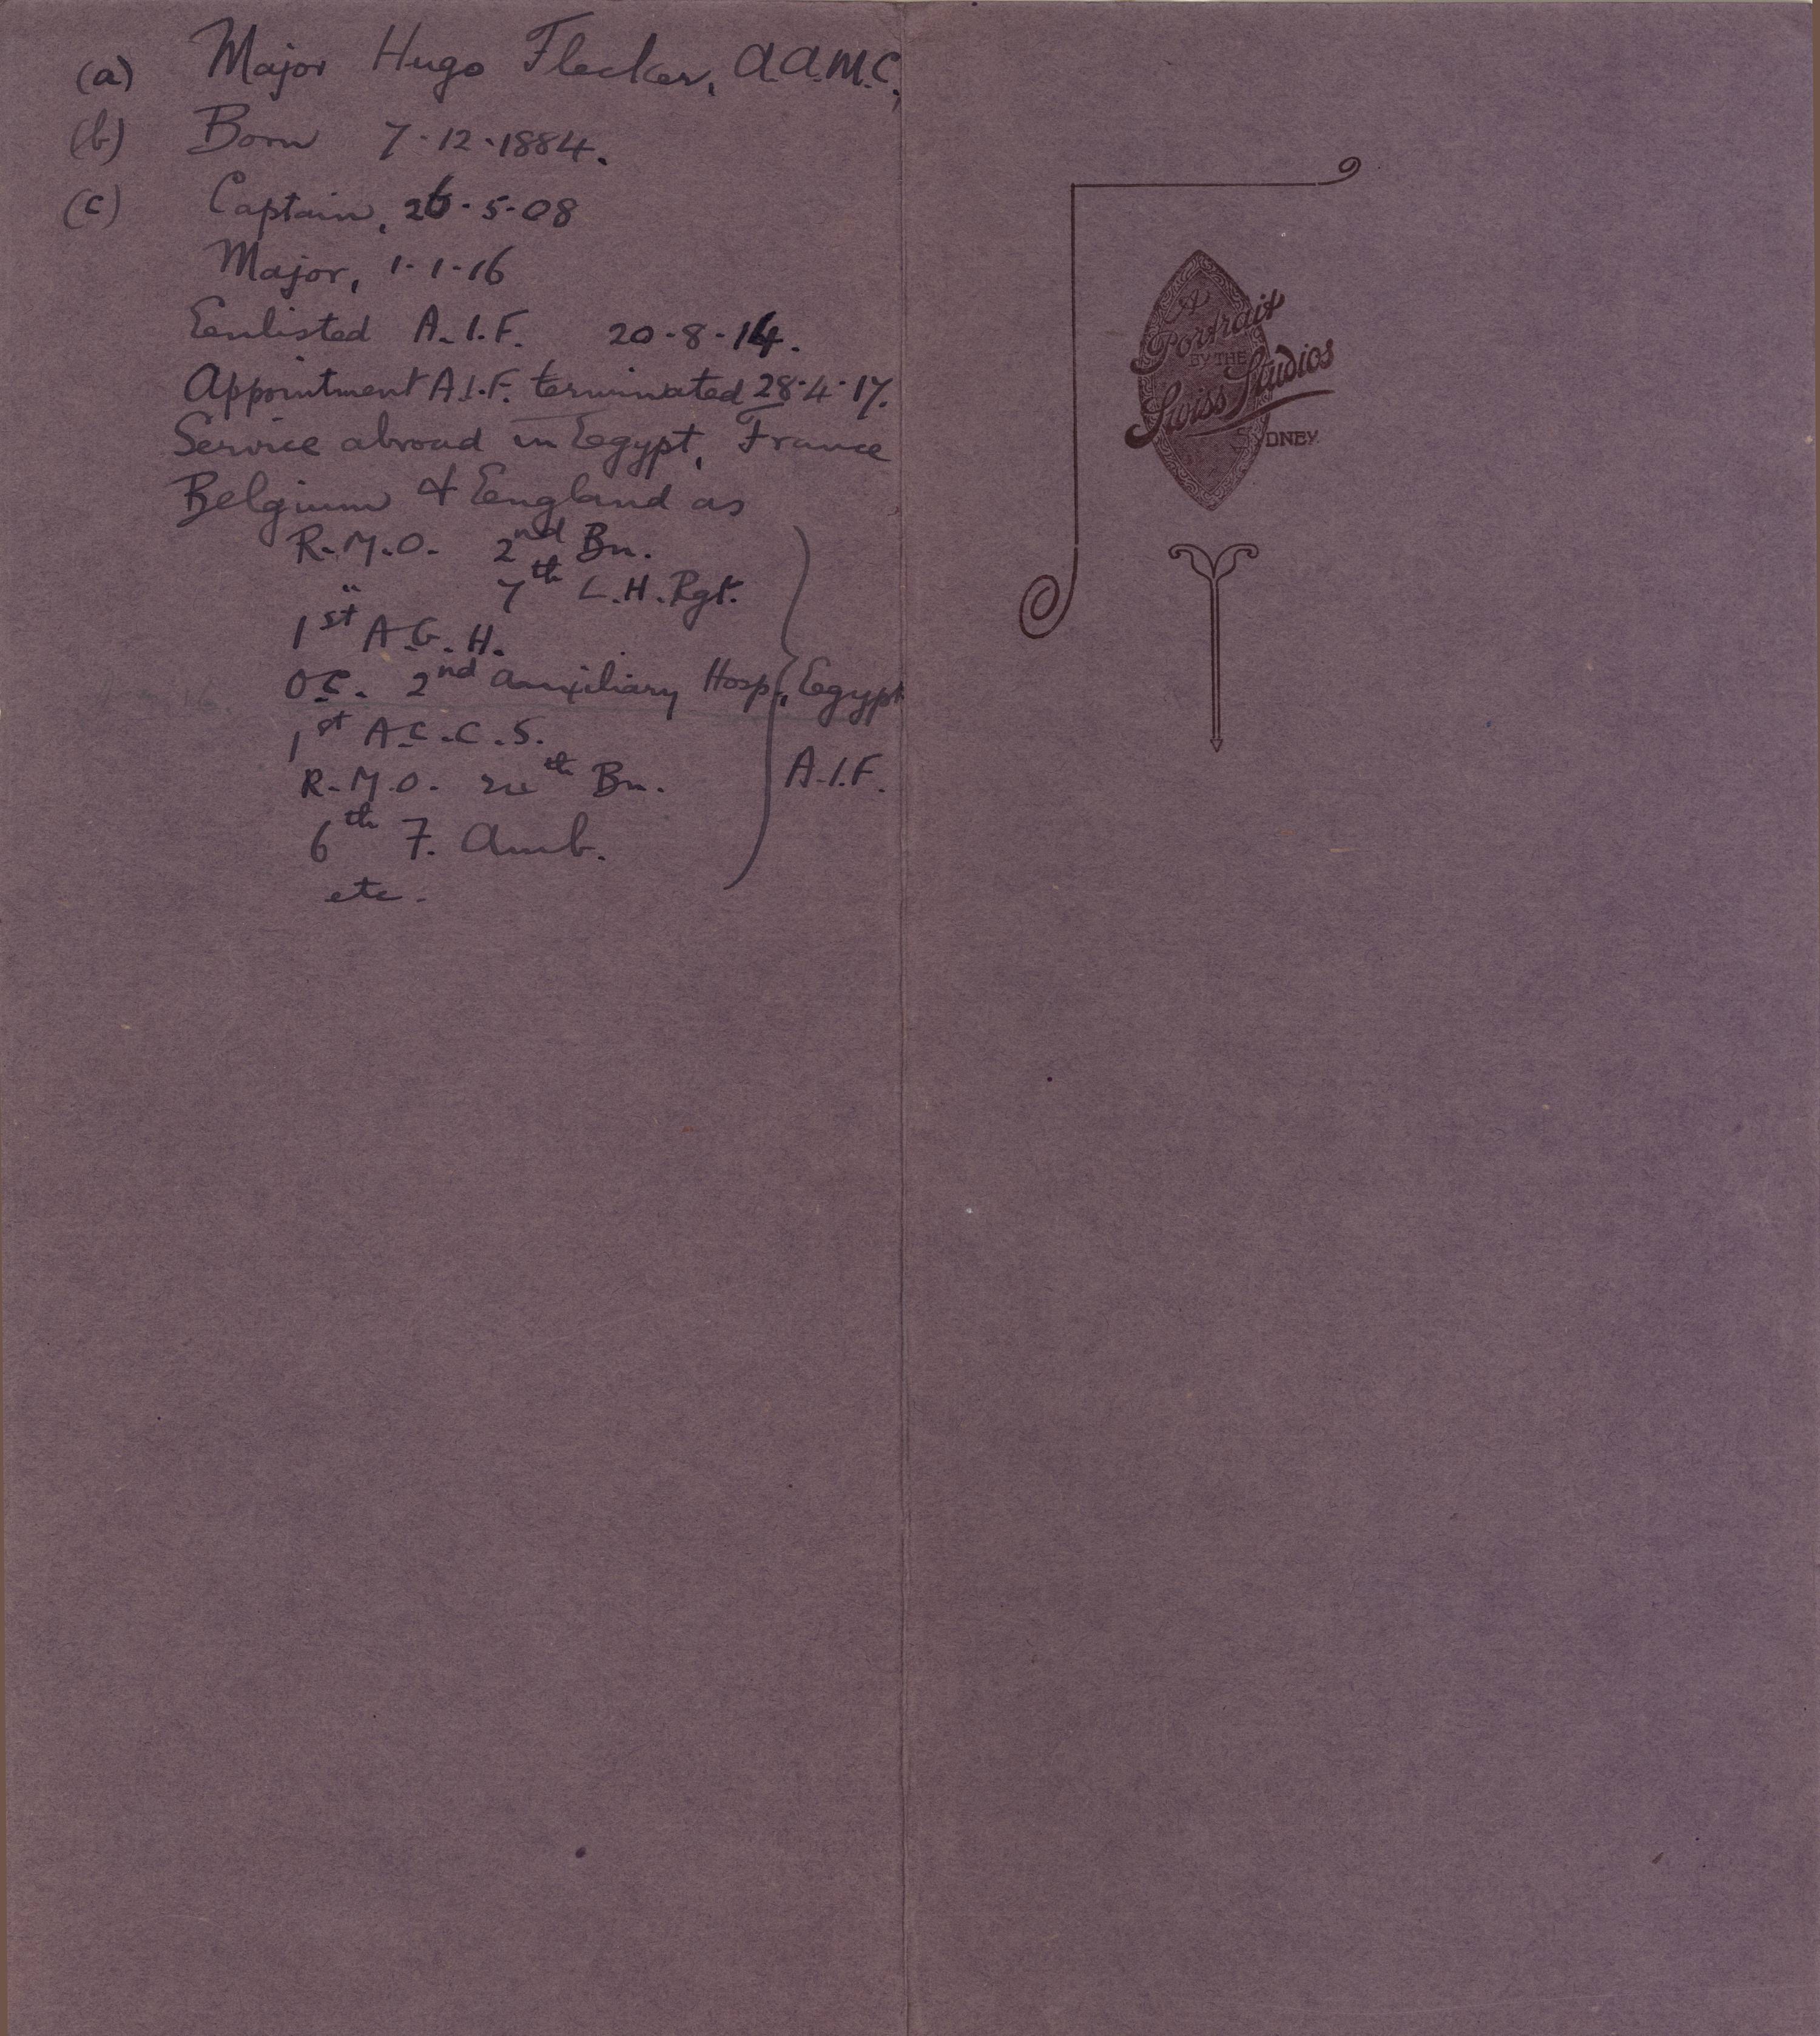 (a) Major Hugo Flecker, A.A.M.C.,
(b) Born 7-12-1884.
(c) Captain, 26-5-08
Major, 1-1-16
Enlisted A.I.F. 20-8-14.
Appointment A.I.F. terminated 28-4-17.
Service abroad in Egypt, France
Belgium & England as
R.M.O. 2nd Bn.
" 7th L.H. Rgt.
1st A.G.H.
O.C. 2nd Auxiliary Hosp., Egypt
1st A.C.C.S.
R.M.O. Bn.
A.I.F.
6th F. Amb.
etc.
A
Portrait
BY THE
Swiss Studios
SYDNEY